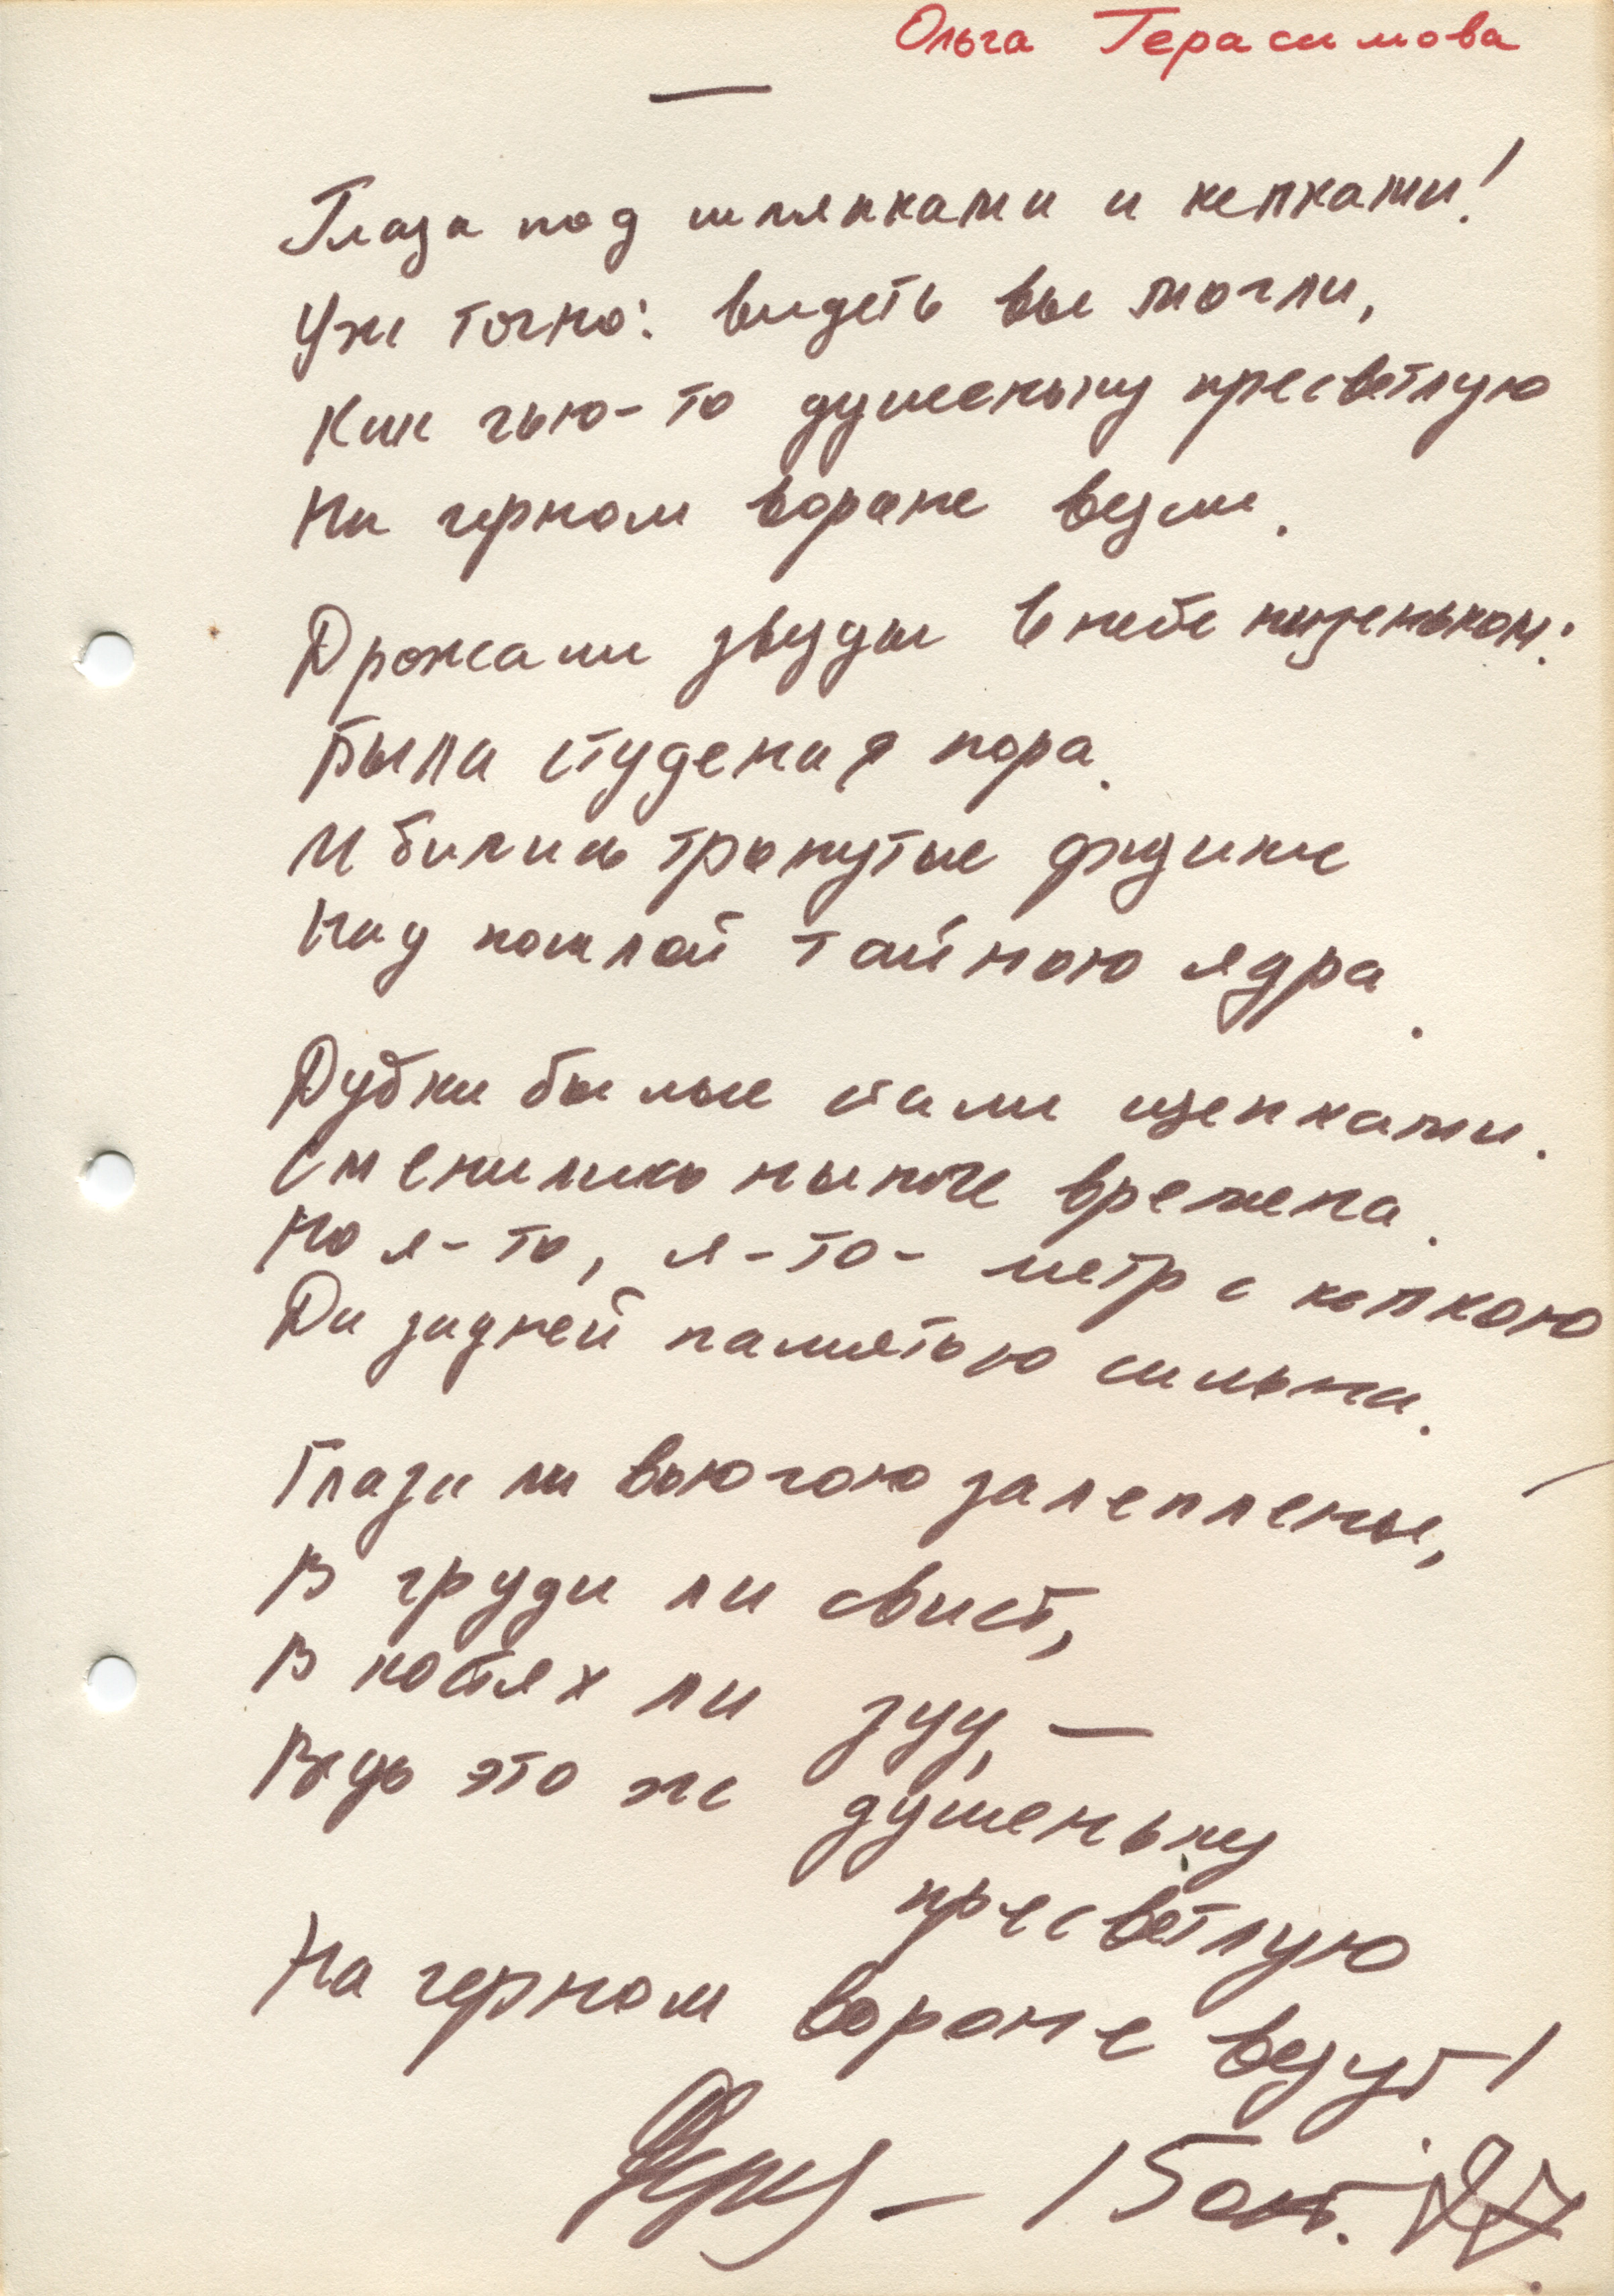 Ольга Герасимова
—
Глаза под шляпками и кепками!
Уж точно: видеть вы могли,
Как чью-то душеньку пресветлую
На черном вороне везли.
Дрожали звезды в небе низеньком:
Была студеная пора.
И бились тронутые физики
Над пошлой тайною ядра.
Дубки былые стали щепками.
Сменились нынче времена.
Но я-то, я-то - метр с кепкою
Да задней памятью сильна.
Глаза ли вьюгою залеплены,
В груди ли свист,
В костях ли зуд, —
Ведь это ж душеньку
пресветлую
На черном вороне везут!
— 15 окт.